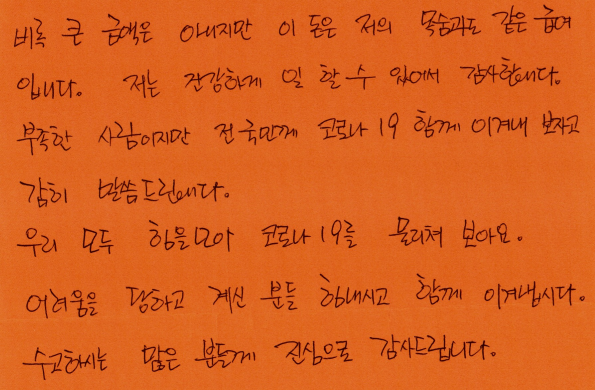 비록 큰 금액은 아니지만 이 돈은 저의 목숨과도 같은 급여
입니다. 저는 건강하게 일 할 수 있어서 감사합니다.
부족한 사람이지만 전국민께 코로나 19 함께 이겨내 보자고
감히 말씀드린니다.
우리 모두 힘을모아 코로나 19를 물리쳐 보아요.
어려움을 당하고 계신 분들 힘내시고 함께 이겨냅시다.
수고하시는 많은 분들께 진심으로 감사드립니다.